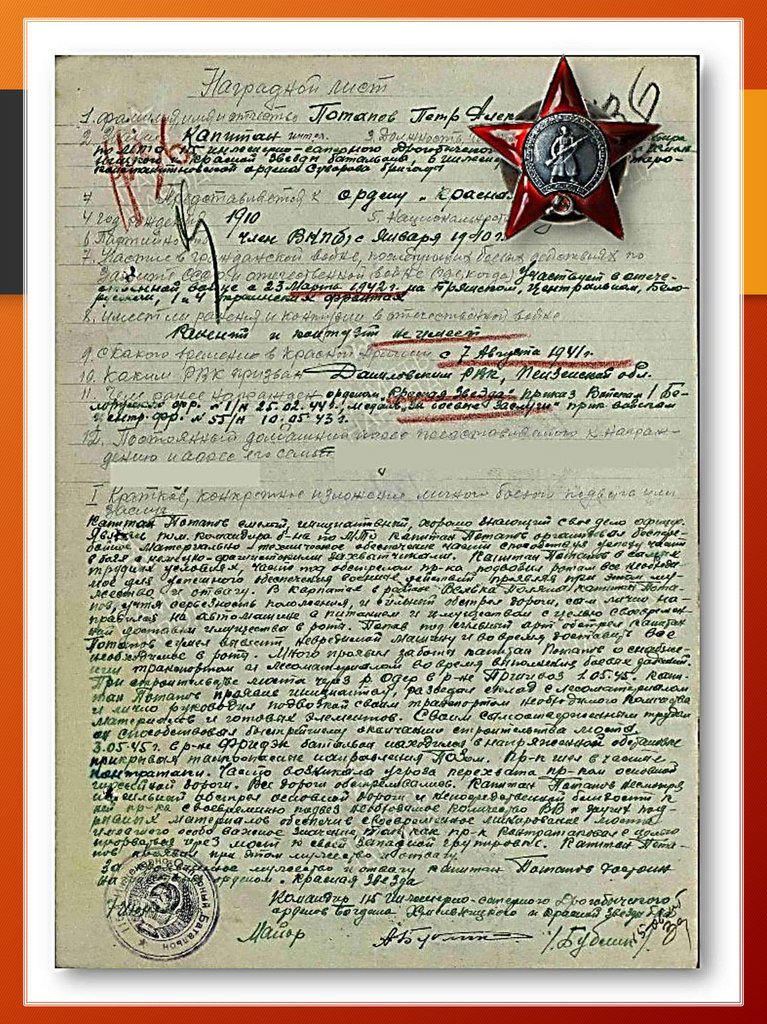 Наградной лист
1. Фамилия, имя и отчество Потапов Петр Алек
2. Звание Капитан интен. 3. Должность
по МТО 115 инженерно-саперного Дрогобычского
и Красной Звезды батальона, 6 инжен
константиновской ордена Суворова бригады
Представляется к ордену „Красная
4 год рождения 1910 5. Национальность
6. Партийность член ВКП(б) с Января 1940 г.
7. Участие в гражданской войне, последующих боевых действиях по
защите СССР и отечественной войне (где, когда) Участвует в отече-
ственной войне с 23 Марта 1942 г. на Брянском, Центральном, Бело-
русском, 1 и 4 Украинских фронтах
8. Имеет ли ранения и контузии в отечественной войне
Ранений и контузий не имеет
9. С какого времени в Красной Армии с 7 Августа 1941 г.
10. Каким РВК призван Даниловским РВК, Пензенской обл.
11. Чем ранее награжден орденом „Красная Звезда" приказ Войскам 1 Бе-
лорусского фр. № 1/н 25.02.44 г., медаль „За боевые заслуги" прик. войскам
Центр. фр. № 55/н 10.05.43 г.
12. Постоянный домашний адрес представляемого к награж-
дению и адрес его семьи
I Краткое, конкретное изложение личного боевого подвига или
заслуг
Капитан Потапов смелый, инициативный, хорошо знающий свое дело офицер.
Являясь пом. командира б-на по МТО капитан Потапов организовал беспере-
бойное материально-техническое обеспечение части способствуя успеху части
в боях с немецко-фашистскими захватчиками. Капитан Потапов в самых
трудных условиях, часто под обстрелом пр-ка подвозил ротам все необходи-
мое для успешного обеспечения боевых действий проявляя при этом му-
жество и отвагу. В Карпатах в районе Поляна капитан Потапов
учтя серьезность положения, и сильный обстрел дороги, сам лично на-
правился на автомашине с питанием и имуществом с целью своевремен-
ной доставки имущества в роты. Попав под сильный арт обстрел капитан
Потапов сумел вывести невредимой машину и во время доставить все
необходимое в роты. Много проявил заботы капитан Потапов о снабже-
нии транспортом и лесоматериалом во время выполнения боевых заданий.
При строительстве моста через р. Одер в р-не Привоз 1.05.45. Капи-
тан Потапов проявив инициативу, разведал склад с лесоматериалом
и лично руководил подвозкой своим транспортом необходимого количества
материалов и готовых элементов. Своим самоотверженным трудом
он способствовал быстрейшему окончанию строительства моста.
3.05.45 г. в р-не Фридэк батальон находился в напряженной обстановке
прикрывая танкоопасные направления ПОЗом. Пр-к шел в частые
контратаки. Часто возникала угроза перехвата пр-ком основной
дороги. Все дороги обстреливались. Капитан Потапов несмотря
на сильный обстрел основной дороги и непосредственной близости к
ней пр-ка своевременно подвез необходимое количество ВВ и других под-
рывных материалов обеспечив своевременное минирование моста
имевшего особо важное значение так как пр-к контратаковал с целью
прорваться через мост к своей западной группировке. Капитан Пота-
пов проявил при этом мужество и отвагу.
За мужество и отвагу капитан Потапов достоин
орденом „Красная Звезда
Командир 115 Инженерно-саперного Дрогобычского
орденов Богдана Хмельницкого и Красной Звезды б-на
Майор /Бублик/